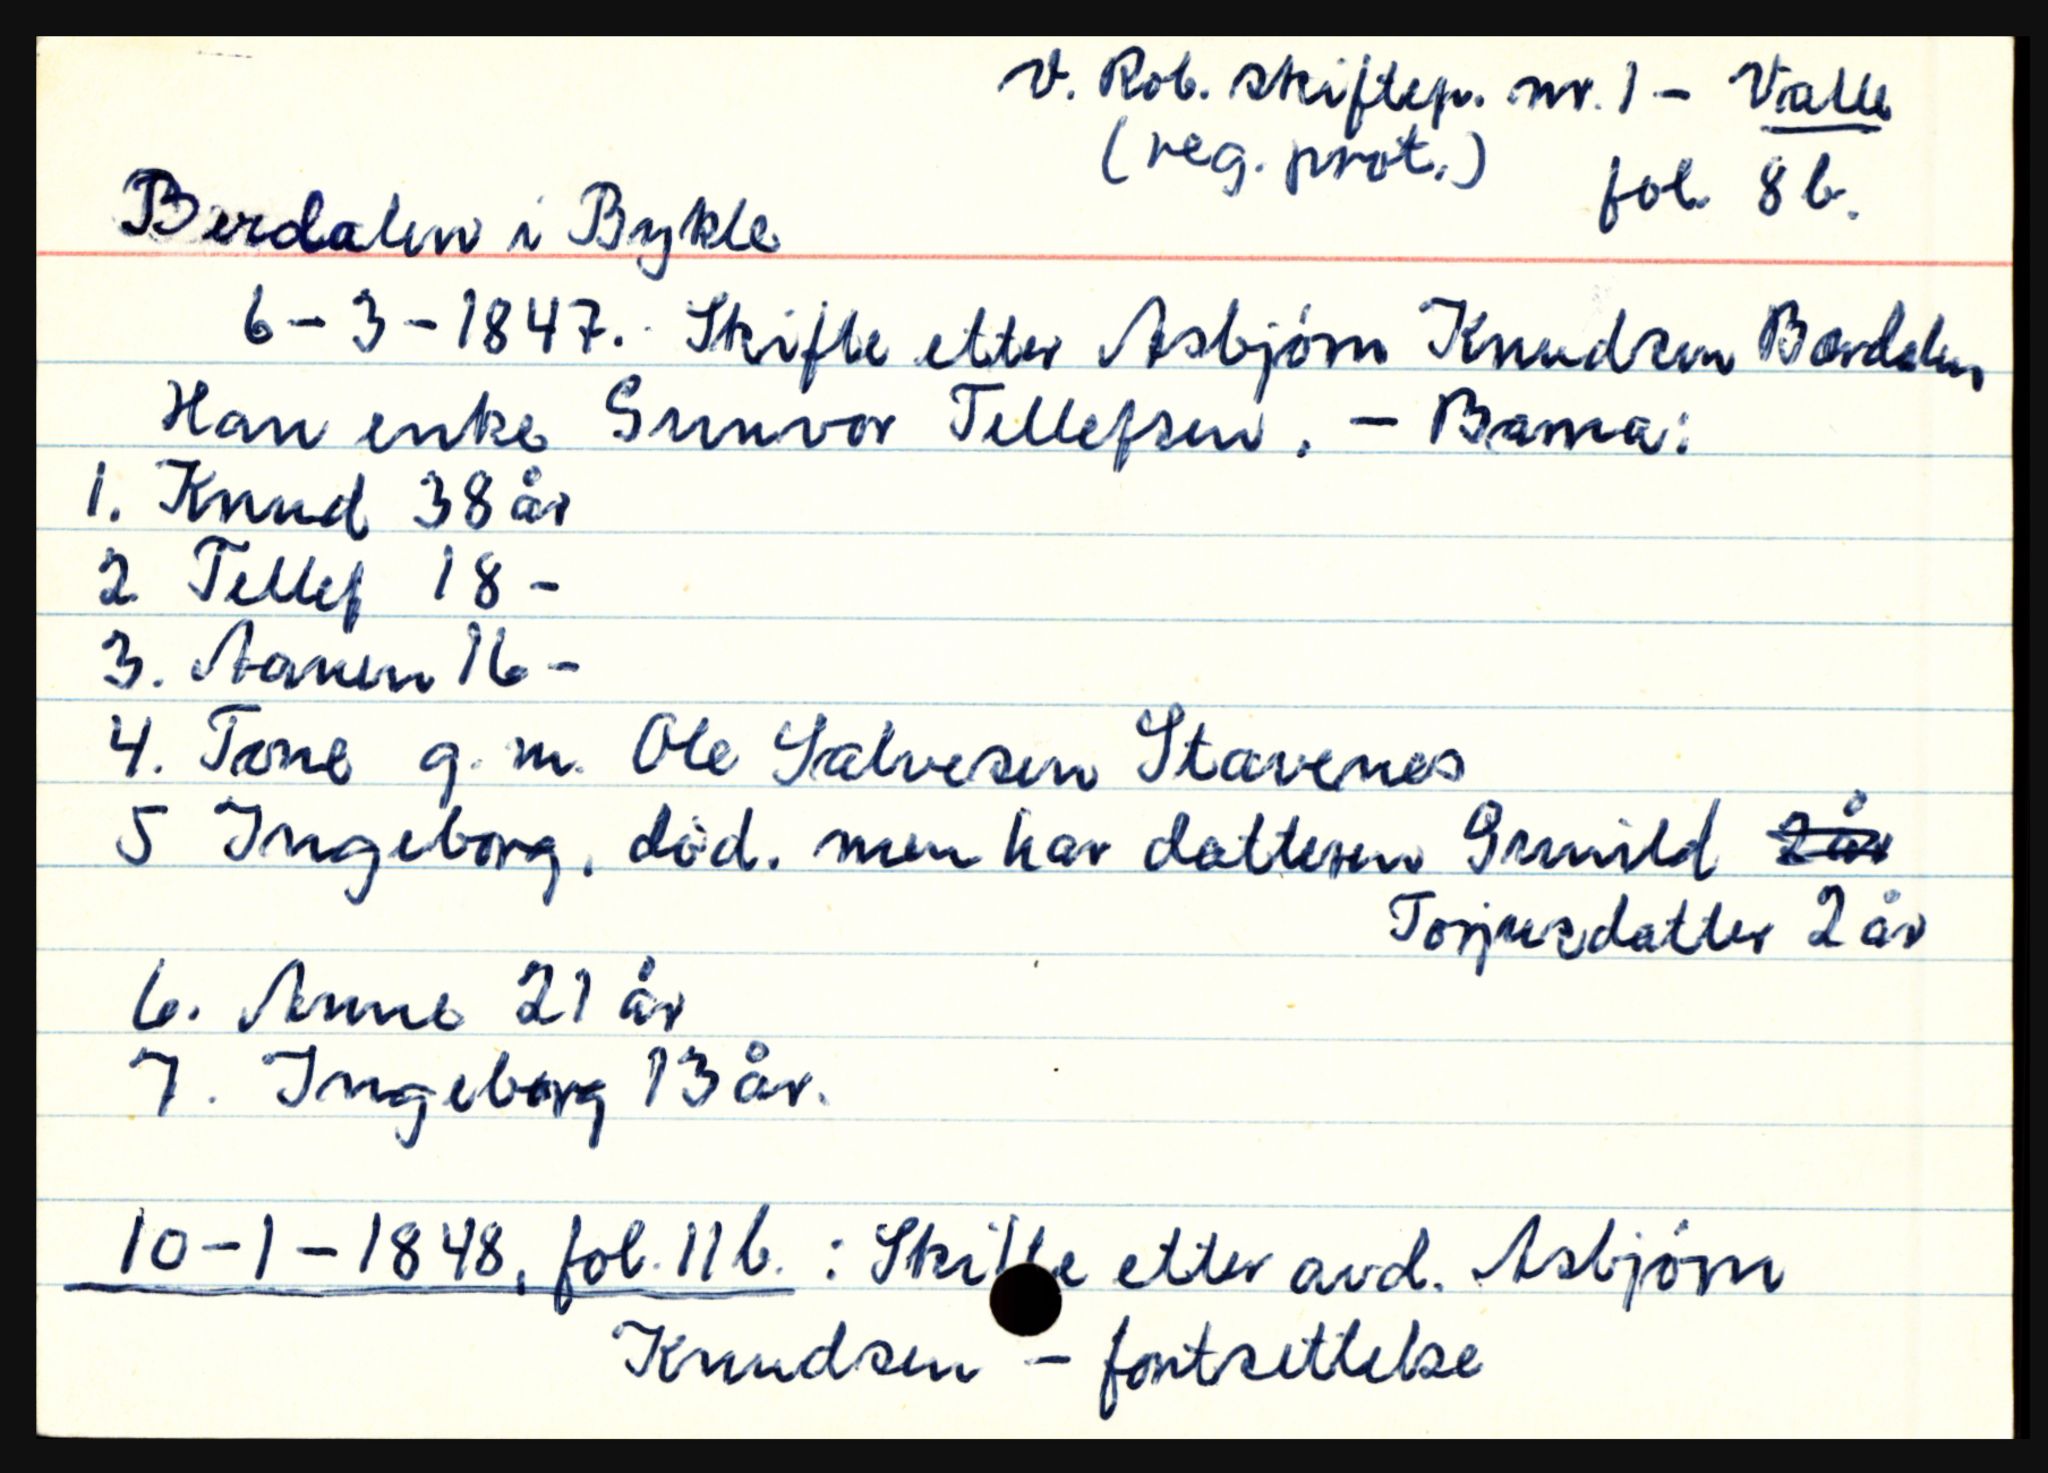 V. Rob. skiftep. nr. 1 - Valle
(reg. prot.) fol. 8b.
Berdalen i Bykle
6-3-1847. Skifte etter Asbjørn Knudsen Bordalen
Han enke Gunvor Tellefsen. - Barna:
1. Knud 38 år
2. Tellef 18 -
3. Aanen 16 -
4. Tone g. m. Ole Salvesen Stavenes
5 Ingeborg, død. men har datteren Gunild 2 år
Torjusdatter 2 år
6. Anne 21 år
7. Ingeborg 13 år.
10-1-1848, fol. 11b. : Skifte etter avd. Asbjørn
Knudsen - fortsettelse